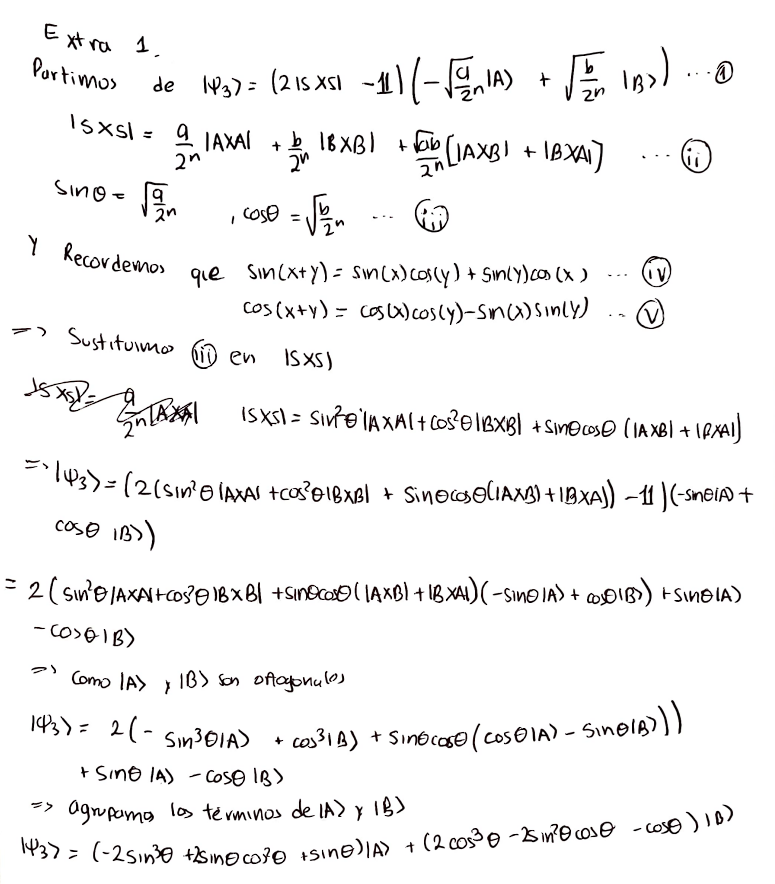 Extra 1.
Partimos de |Ψ3> = (2|SXS| - 1)(-√(a/2^n) |A> + √(b/2^n) |B>) ... (i)
|SXS| = a/2^n |AXA| + b/2^n |BXB| + √ab/2^n [|AXB| + |BXA|] ... (ii)
sinθ = √(a/2^n) , cosθ = √(b/2^n) ... (iii)
Y Recordemos que sin(x+y) = sin(x)cos(y) + sin(y)cos(x) ... (iv)
cos(x+y) = cos(x)cos(y) - sin(x)sin(y) ... (v)
=> Sustituimo (iii) en |SXS|
|SXS| = a/2^n |AXA| |SXS| = sin²θ |AXA| + cos²θ |BXB| + sinθcosθ (|AXB| + |BXA|)
=> |Ψ3> = (2(sin²θ |AXA| + cos²θ |BXB| + sinθcosθ(|AXB) + |BXA|) - 1)(-sinθ|A> +
cosθ |B>)
= 2(sin²θ|AXA|+cos²θ|BXB| + sinθcosθ(|AXB|+|BXA|)(-sinθ|A> + cosθ|B>) + sinθ|A>
- cosθ|B>
=> Como |A> y |B> son ortogonales
|Ψ3> = 2(- sin³θ|A> + cos³|B> + sinθcosθ(cosθ|A> - sinθ|B>))
+ sinθ |A> - cosθ |B>
=> agrupamo los términos de |A> y |B>
|Ψ3> = (-2sin³θ + 2sinθcos²θ + sinθ)|A> + (2cos³θ - 2sin²θcosθ - cosθ)|B>